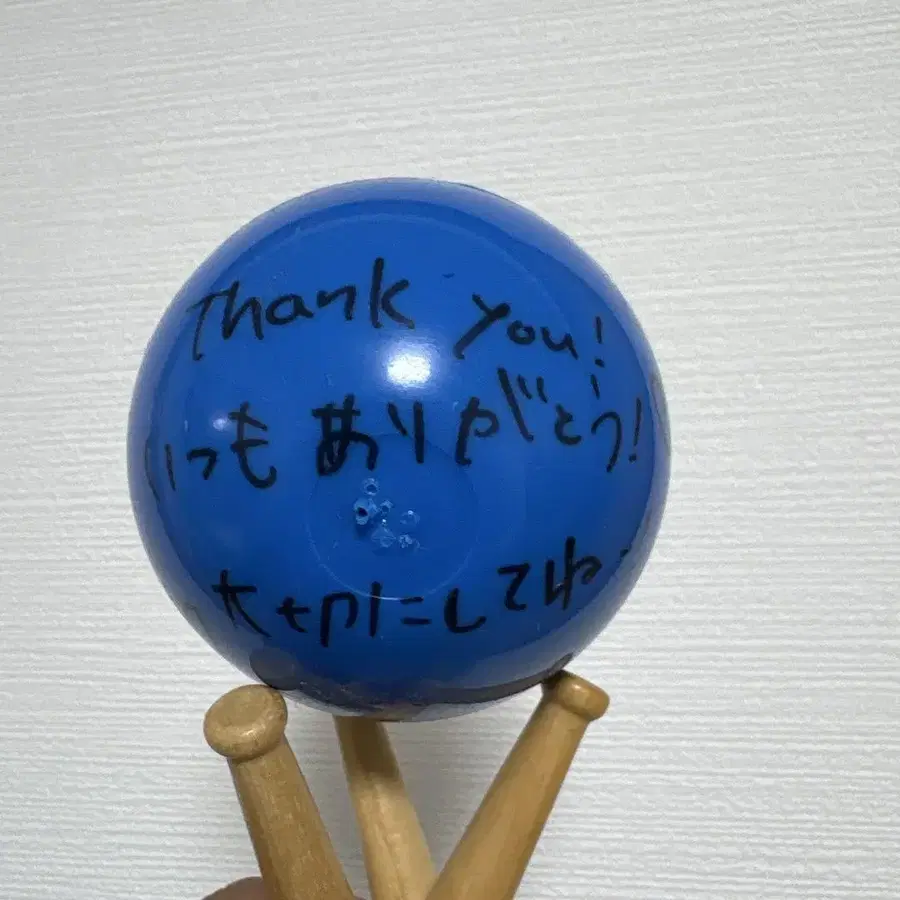 Thank you!
いつもありがとう!
大切にしてね.